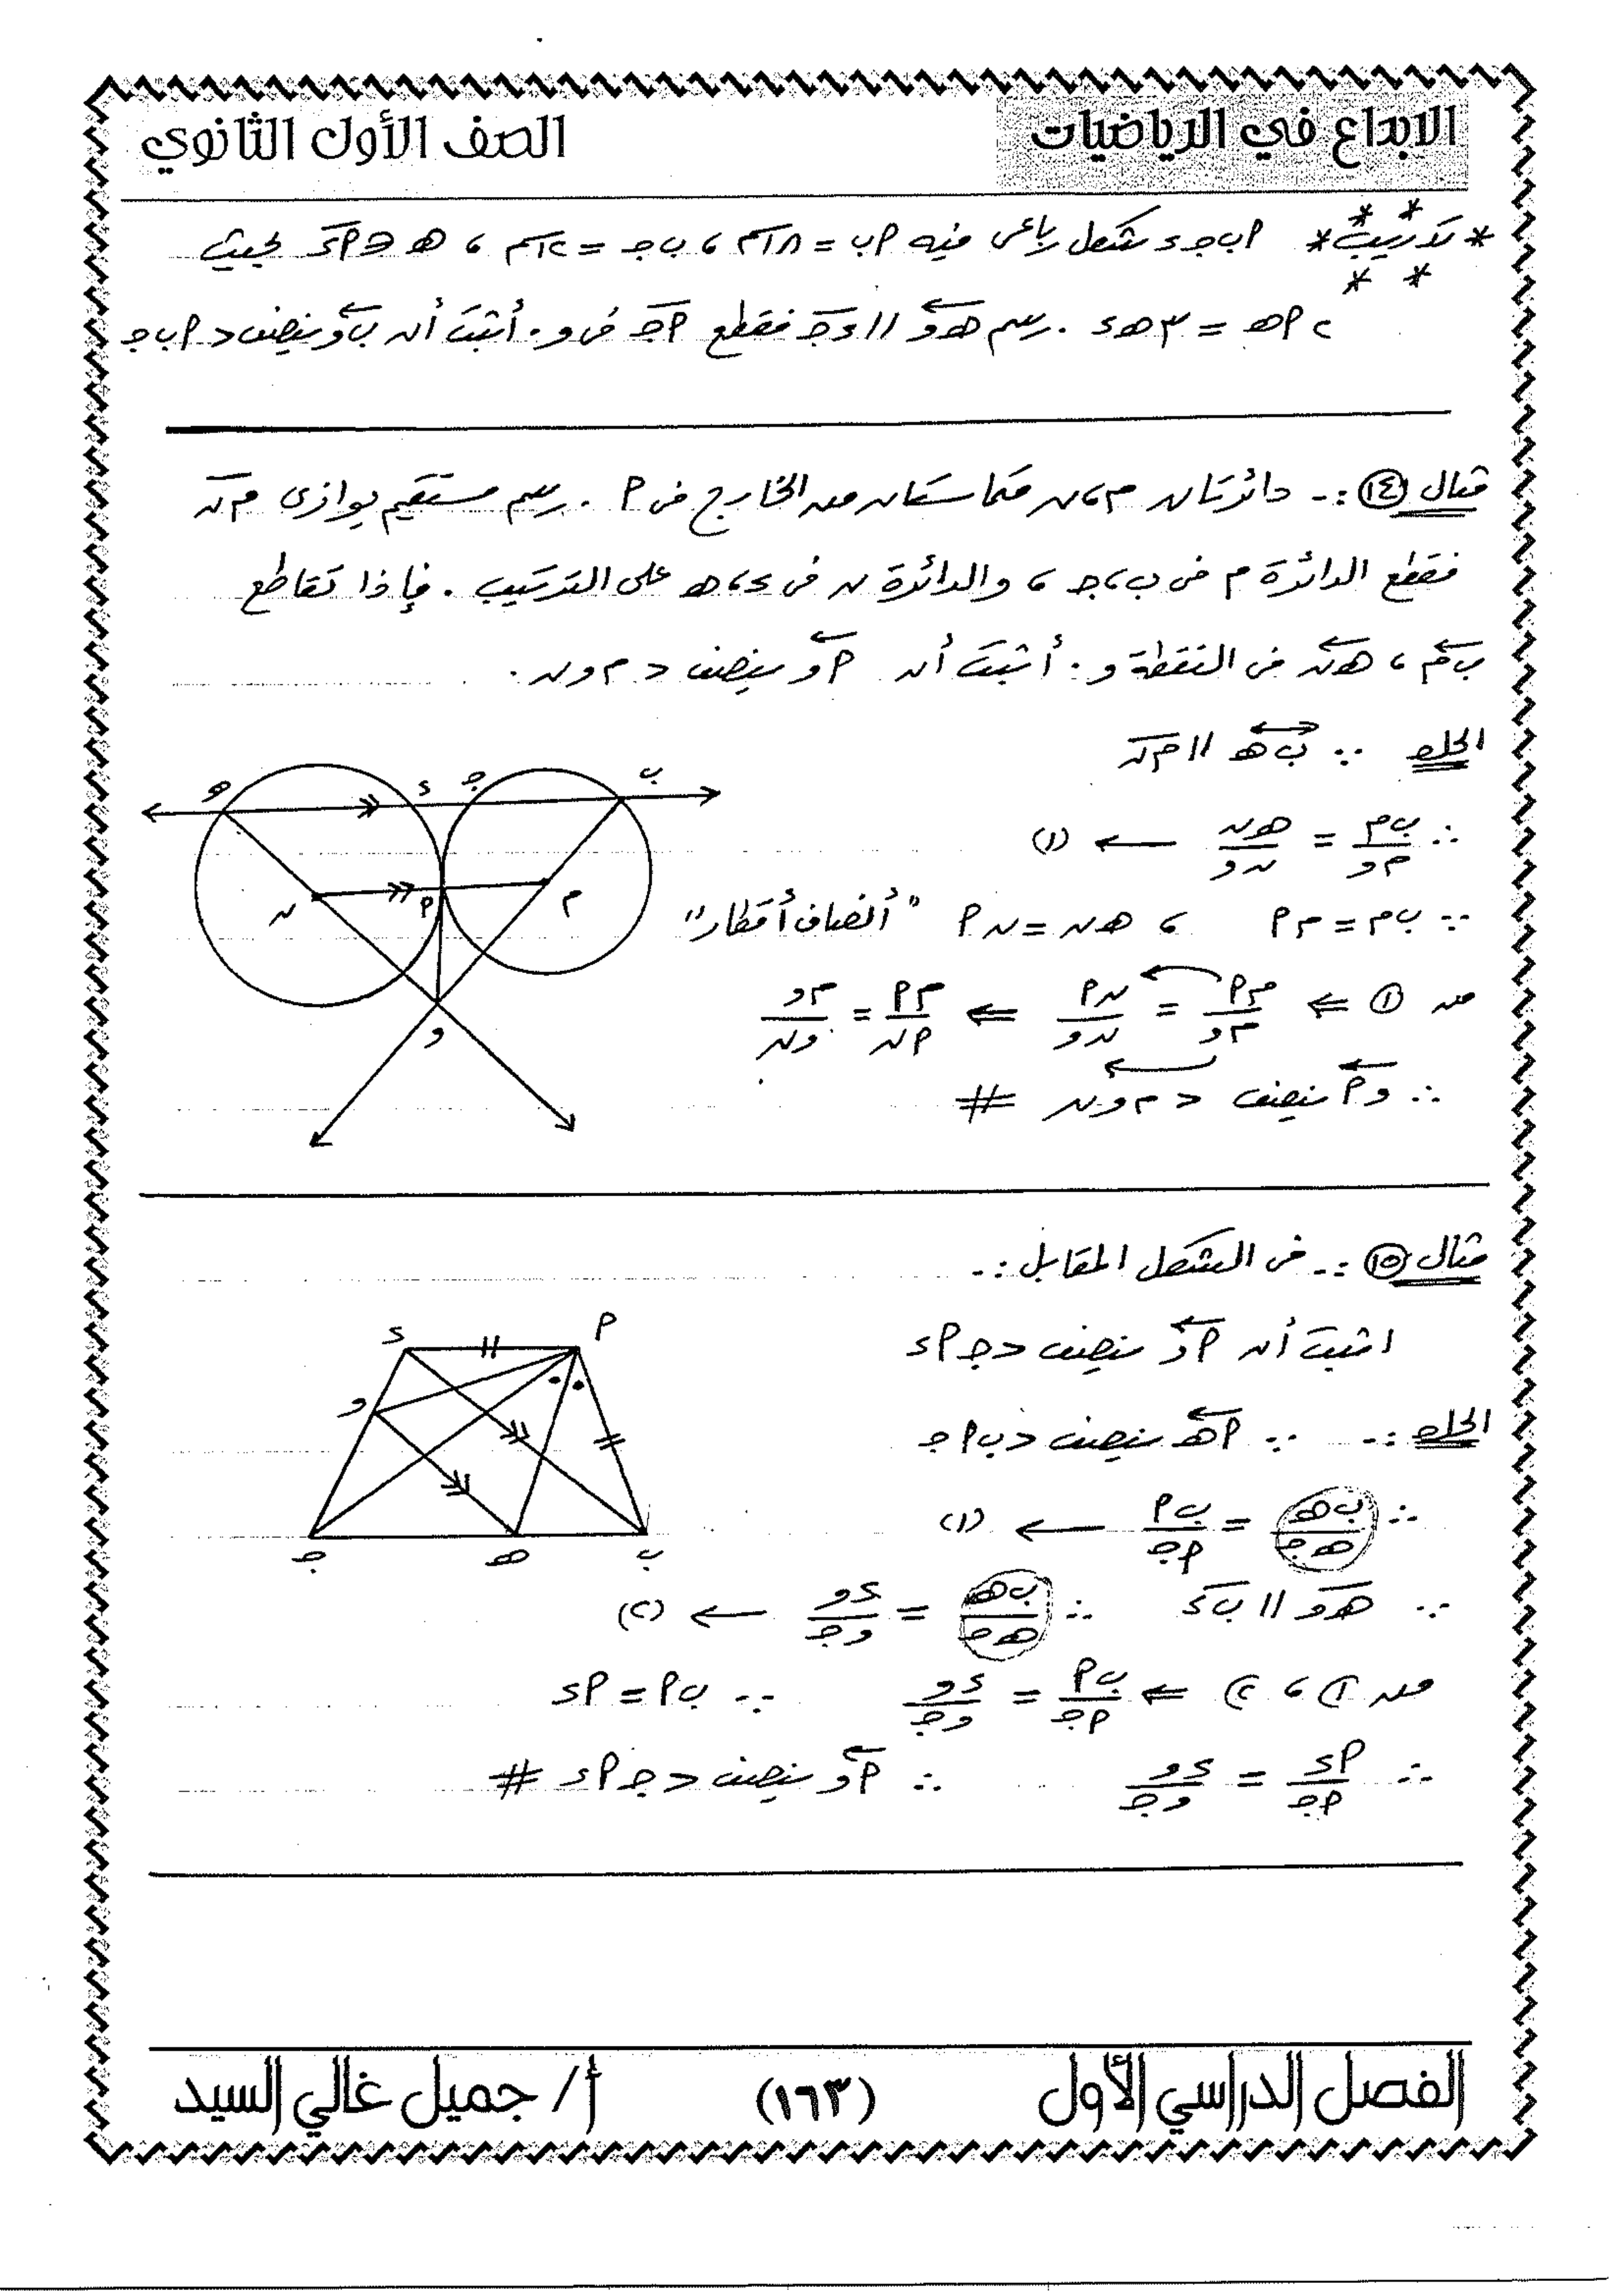 الابداع في الرياضيات
الصف الأول الثانوي
* تدريب * أ ب ج د شكل رباعى فيه أ ب = ١٨ سم ، ب ج = ١٢ سم ، ه ∈ أد بحيث
٢ أ ه = ٣ ه د . رسم هو // دج فقطع أج فى و . أثبت أن بو ينصف > أ ب ج
مثال (١٤) :- دائرتان م ، ن متماستان من الخارج فى أ . رسم مستقيم يوازى من
فقطع الدائرة م فى ب ، ج ، والدائرة ن فى د ، ه على الترتيب . فإذا تقاطع
بم ، هن فى النقطة و . أثبت أن أو ينصف > م و ن .
الحل ∵ ب ه // م ن
∴ ب م / م و = ه ن / ن و ← (١)
∵ ب م = م أ ، ه ن = ن أ " أنصاف أقطار "
من (١) ⇐ م أ / م و = ن أ / ن و ⇐ م أ / أ ن = م و / و ن
∴ و أ ينصف > م و ن #
ه د ج ب
ن أ م
و
مثال (١٥) :- فى الشكل المقابل :-
اثبت أن أ و ينصف > ج أ د
الحل :- ∵ أ ه ينصف > ب أ ج
∴ ب ه / ه ج = ب أ / أ ج ← (١)
∵ ه و // ب د ∴ ب ه / ه ج = د و / و ج ← (٢)
من ١ ، ٢ ⇐ ب أ / أ ج = د و / و ج ∵ ب أ = أ د
∴ أ د / أ ج = د و / و ج ∴ أ و ينصف > ج أ د #
د أ
و
ج ه ب
الفصل الدراسي الأول
(١٦٣)
أ / جميل غالي السيد